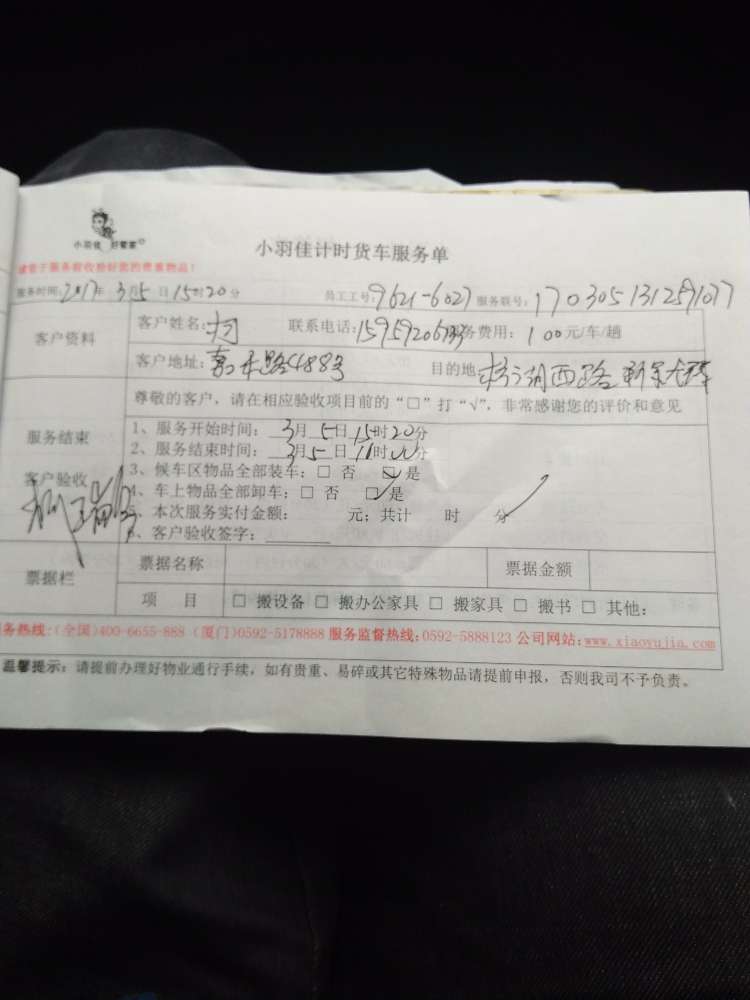 小羽佳 好管家
小羽佳计时货车服务单
请您于服务前收拾好您的贵重物品!
服务时间:2017年 3月5日15时20分 员工工号:9621-6027 服务联号:
客户资料
客户姓名: 联系电话: 服务费用:100元/车/趟
客户地址: 路488号 目的地: 湖西路
尊敬的客户,请在相应验收项目前的“□”打“√”,非常感谢您的评价和意见
服务结束
客户验收
1、服务开始时间: 3月5日15时20分
2、服务结束时间: 3月5日 时 分
3、候车区物品全部装车:□ 否 ☑是
4、车上物品全部卸车:□ 否 ☑是
5、本次服务实付金额: 元;共计 时 分
6、客户验收签字:
票据栏
票据名称 票据金额
项 目 □ 搬设备 □ 搬办公家具 □ 搬家具 □ 搬书 □ 其他:
务热线:(全国)400-6655-888 (厦门)0592-5178888 服务监督热线:0592-5888123 公司网站:www.xiaoyujia.com
温馨提示:请提前办理好物业通行手续,如有贵重、易碎或其它特殊物品请提前申报,否则我司不予负责。